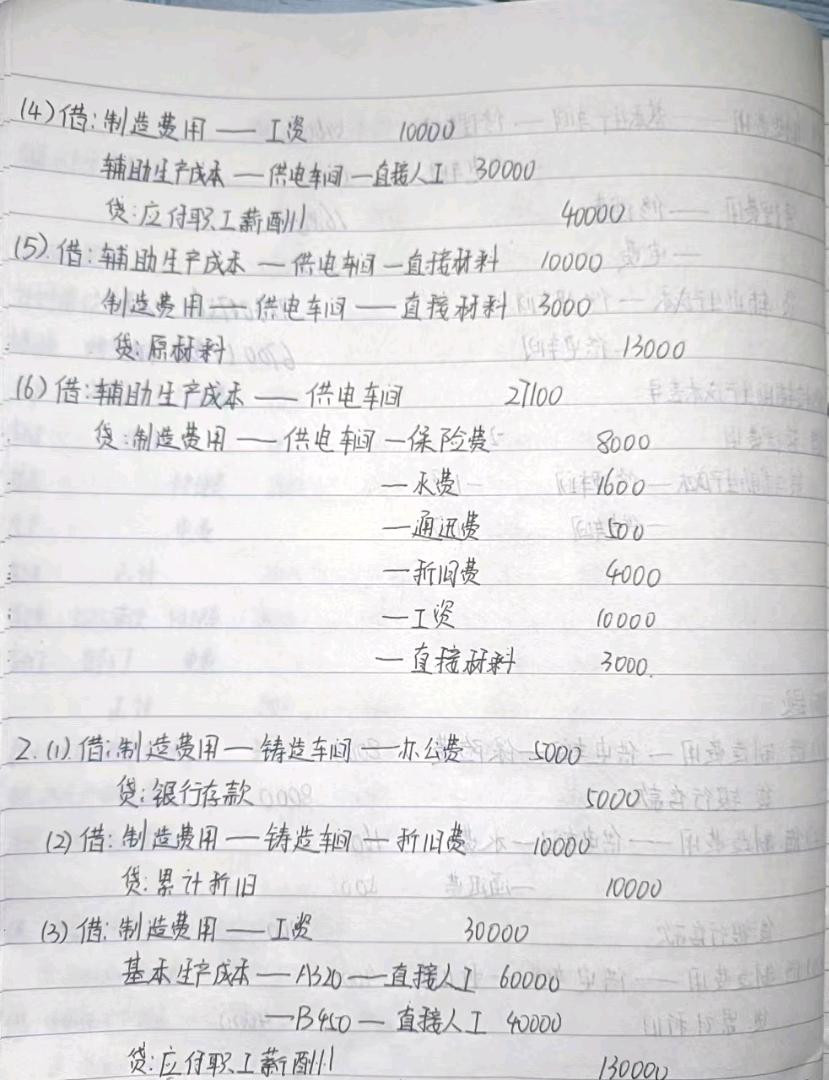 (4)借:制造费用——工资 10000
辅助生产成本—供电车间—直接人工 30000
贷:应付职工薪酬 40000
(5).借:辅助生产成本—供电车间—直接材料 10000
制造费用——供电车间——直接材料 3000
贷:原材料 13000
(6)借:辅助生产成本——供电车间 27100
贷:制造费用——供电车间—保险费 8000
—水费 1600
—通讯费 500
—折旧费 4000
—工资 10000
—直接材料 3000.
2.(1).借:制造费用—铸造车间——办公费 5000
贷:银行存款 5000
(2)借:制造费用——铸造车间——折旧费 10000
贷:累计折旧 10000
(3)借:制造费用——工资 30000
基本生产成本——A320——直接人工 60000
——B450—直接人工 40000
贷:应付职工薪酬 130000